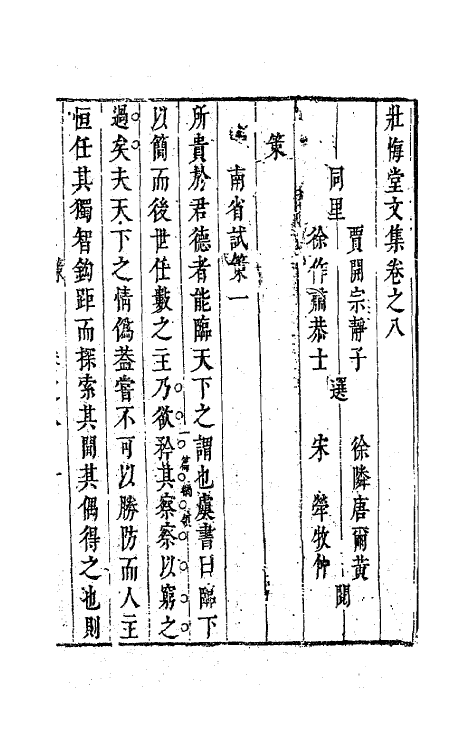 壯悔堂文集卷之八
同里
賈開宗靜子
徐作肅恭士
選
徐隣唐爾黃
宋犖牧仲
閱
策
南省試策一
所貴於君德者能臨天下之謂也虞書曰臨下
一篇綱領
以簡而後世任數之主乃欲矜其察察以窮之
過矣夫天下之情僞葢嘗不可以勝防而人主
恒任其獨智鉤距而探索其間其偶得之也則